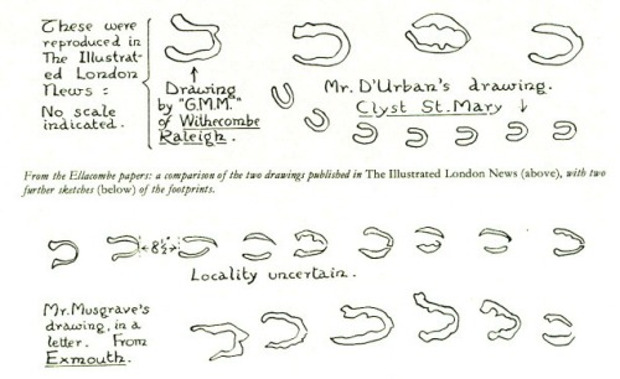 These were
reproduced in
The Illustrat-
ed London
News :
No scale
indicated.
Drawing
by "G.M.M."
of Withecombe
Raleigh.
Mr. D'Urban's drawing.
Clyst St. Mary
From the Ellacombe papers: a comparison of the two drawings published in The Illustrated London News (above), with two
further sketches (below) of the footprints.
8½"
Locality uncertain.
Mr. Musgrave's
drawing, in a
letter. From
Exmouth.